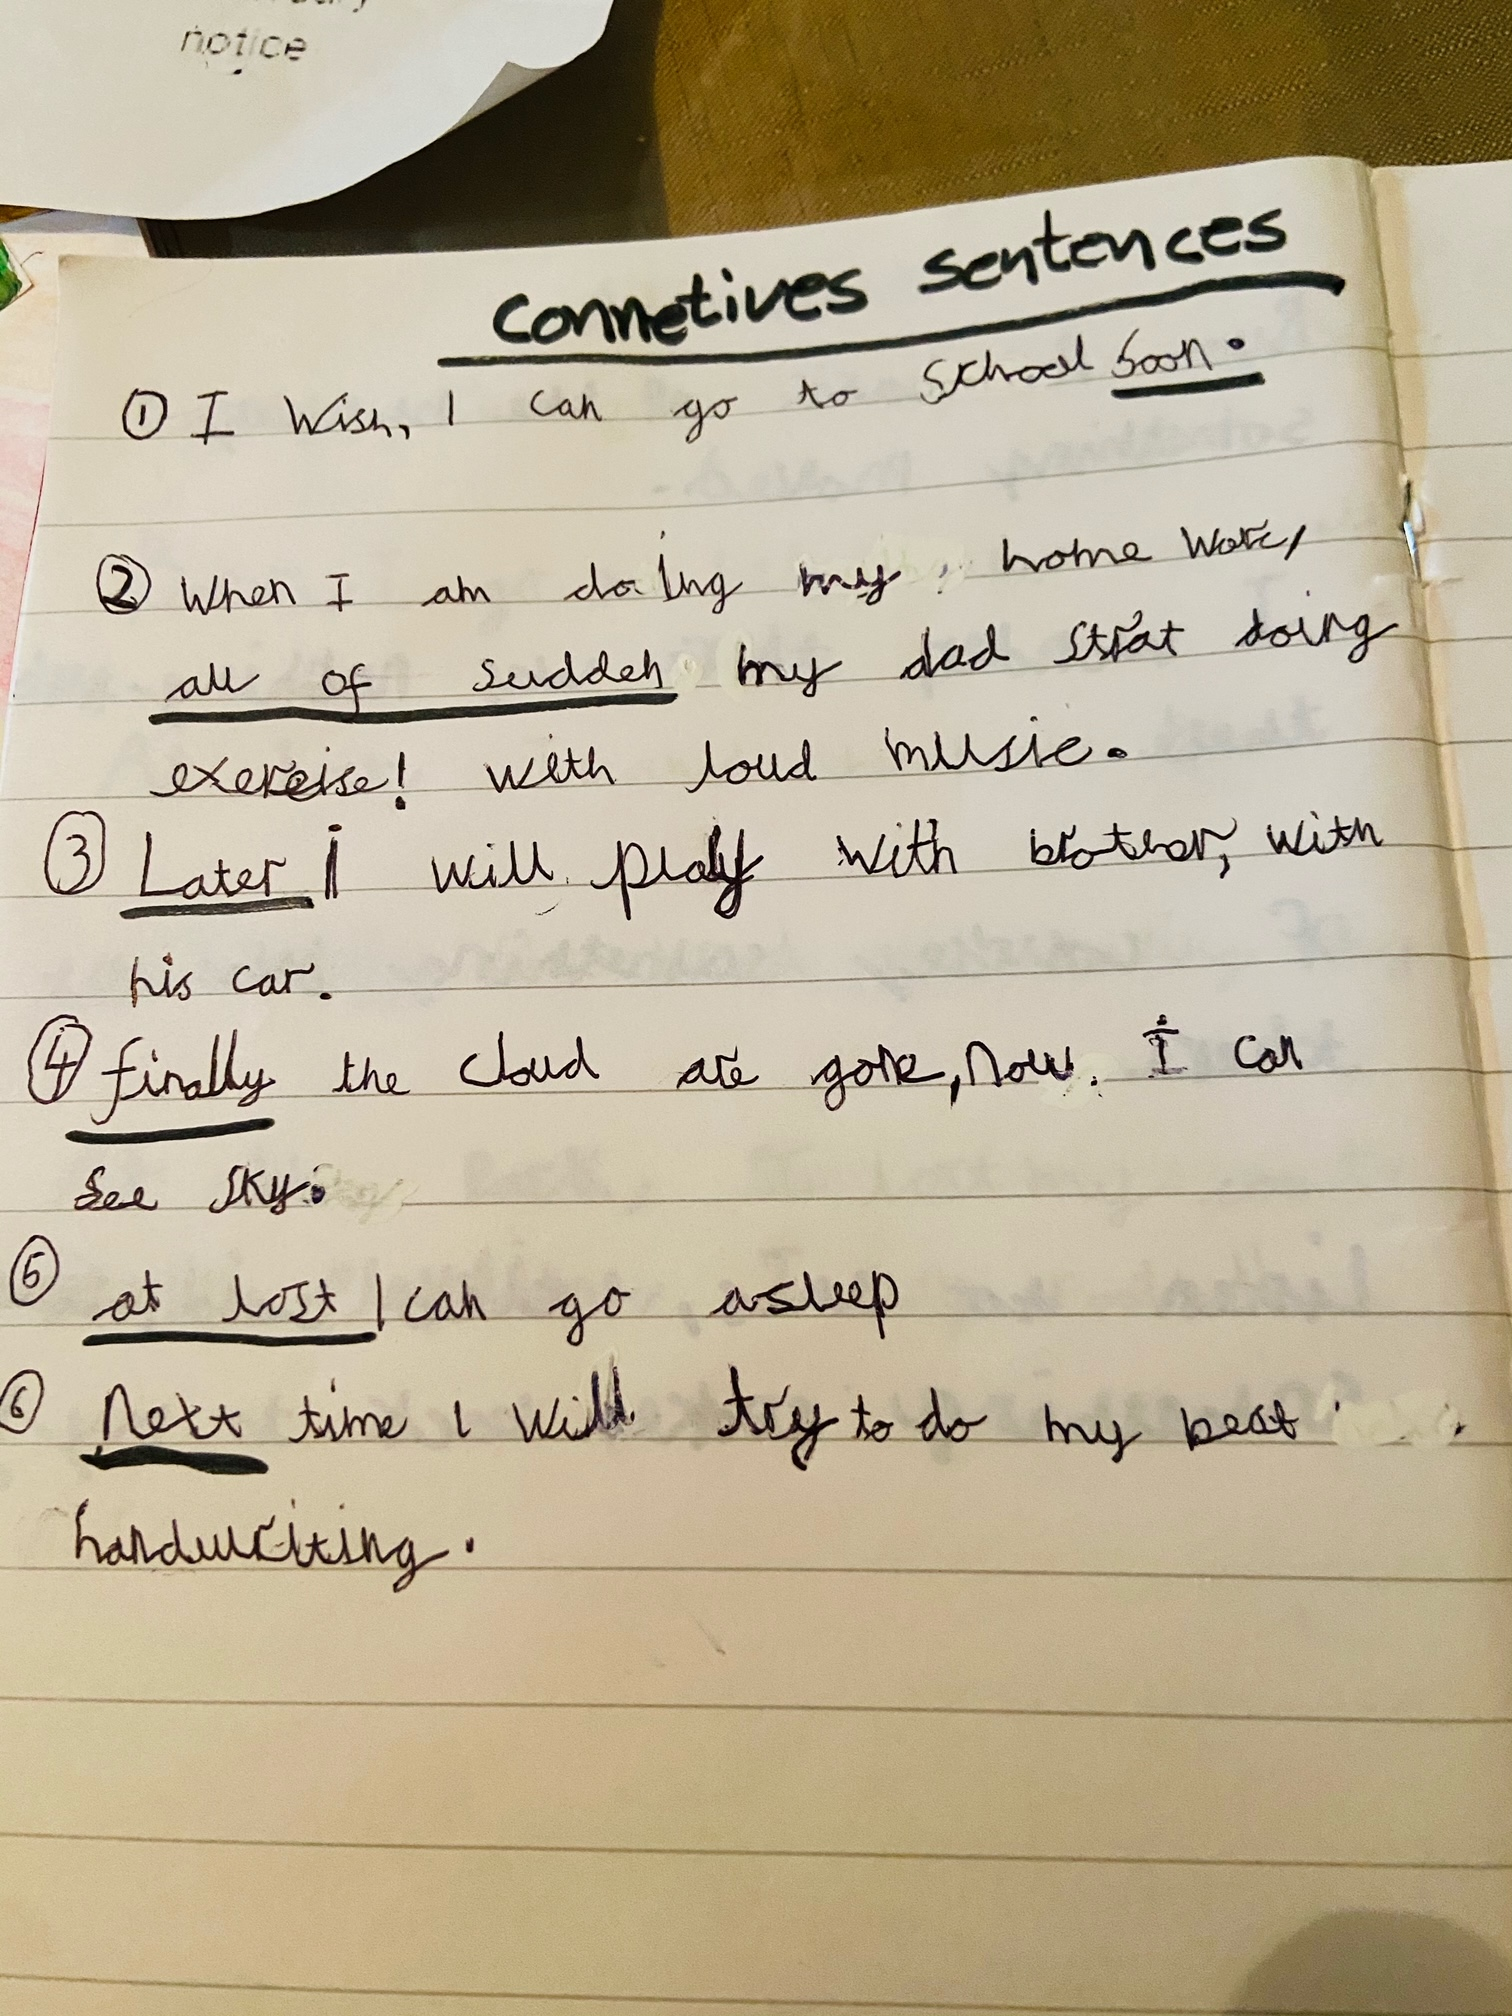 notice
Connetives sentences
① I wish, I can go to school soon.
② When I am doing my home work,
all of sudden my dad strat doing
exercise! with loud music.
③ Later I will play with brother, with
his car.
④ finally the cloud are gone, now. I can
see sky.
⑤ at last I can go asleep
⑥ Next time I will try to do my best
handwriting.